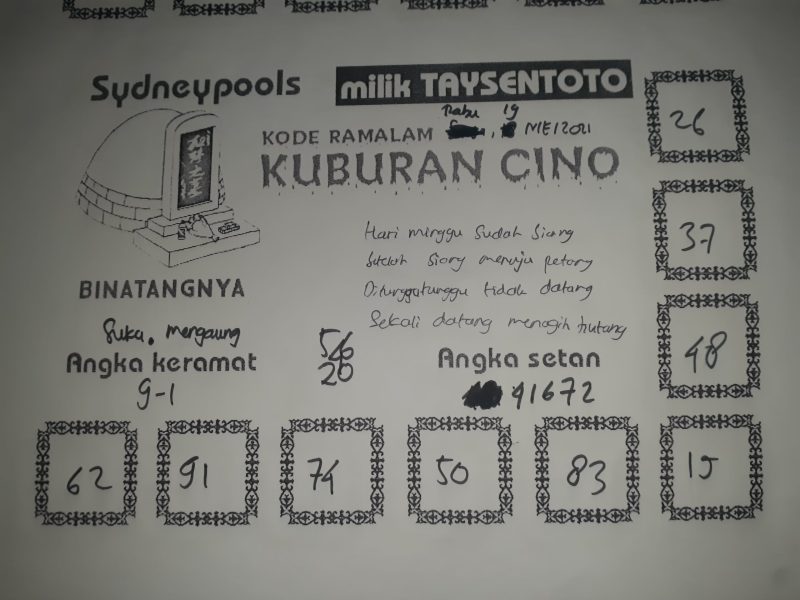 Sydneypools
milik TAYSENTOTO
Rabu 19
KODE RAMALAM , MEI 2021
KUBURAN CINO
26
37
48
Hari minggu sudah siang
Setelah siang menuju petang
Ditunggutunggu tidak datang
Sekali datang menagih hutang
BINATANGNYA
Suka. mengaung
Angka keramat
9-1
56
20
Angka setan
41672
62
91
74
50
83
15